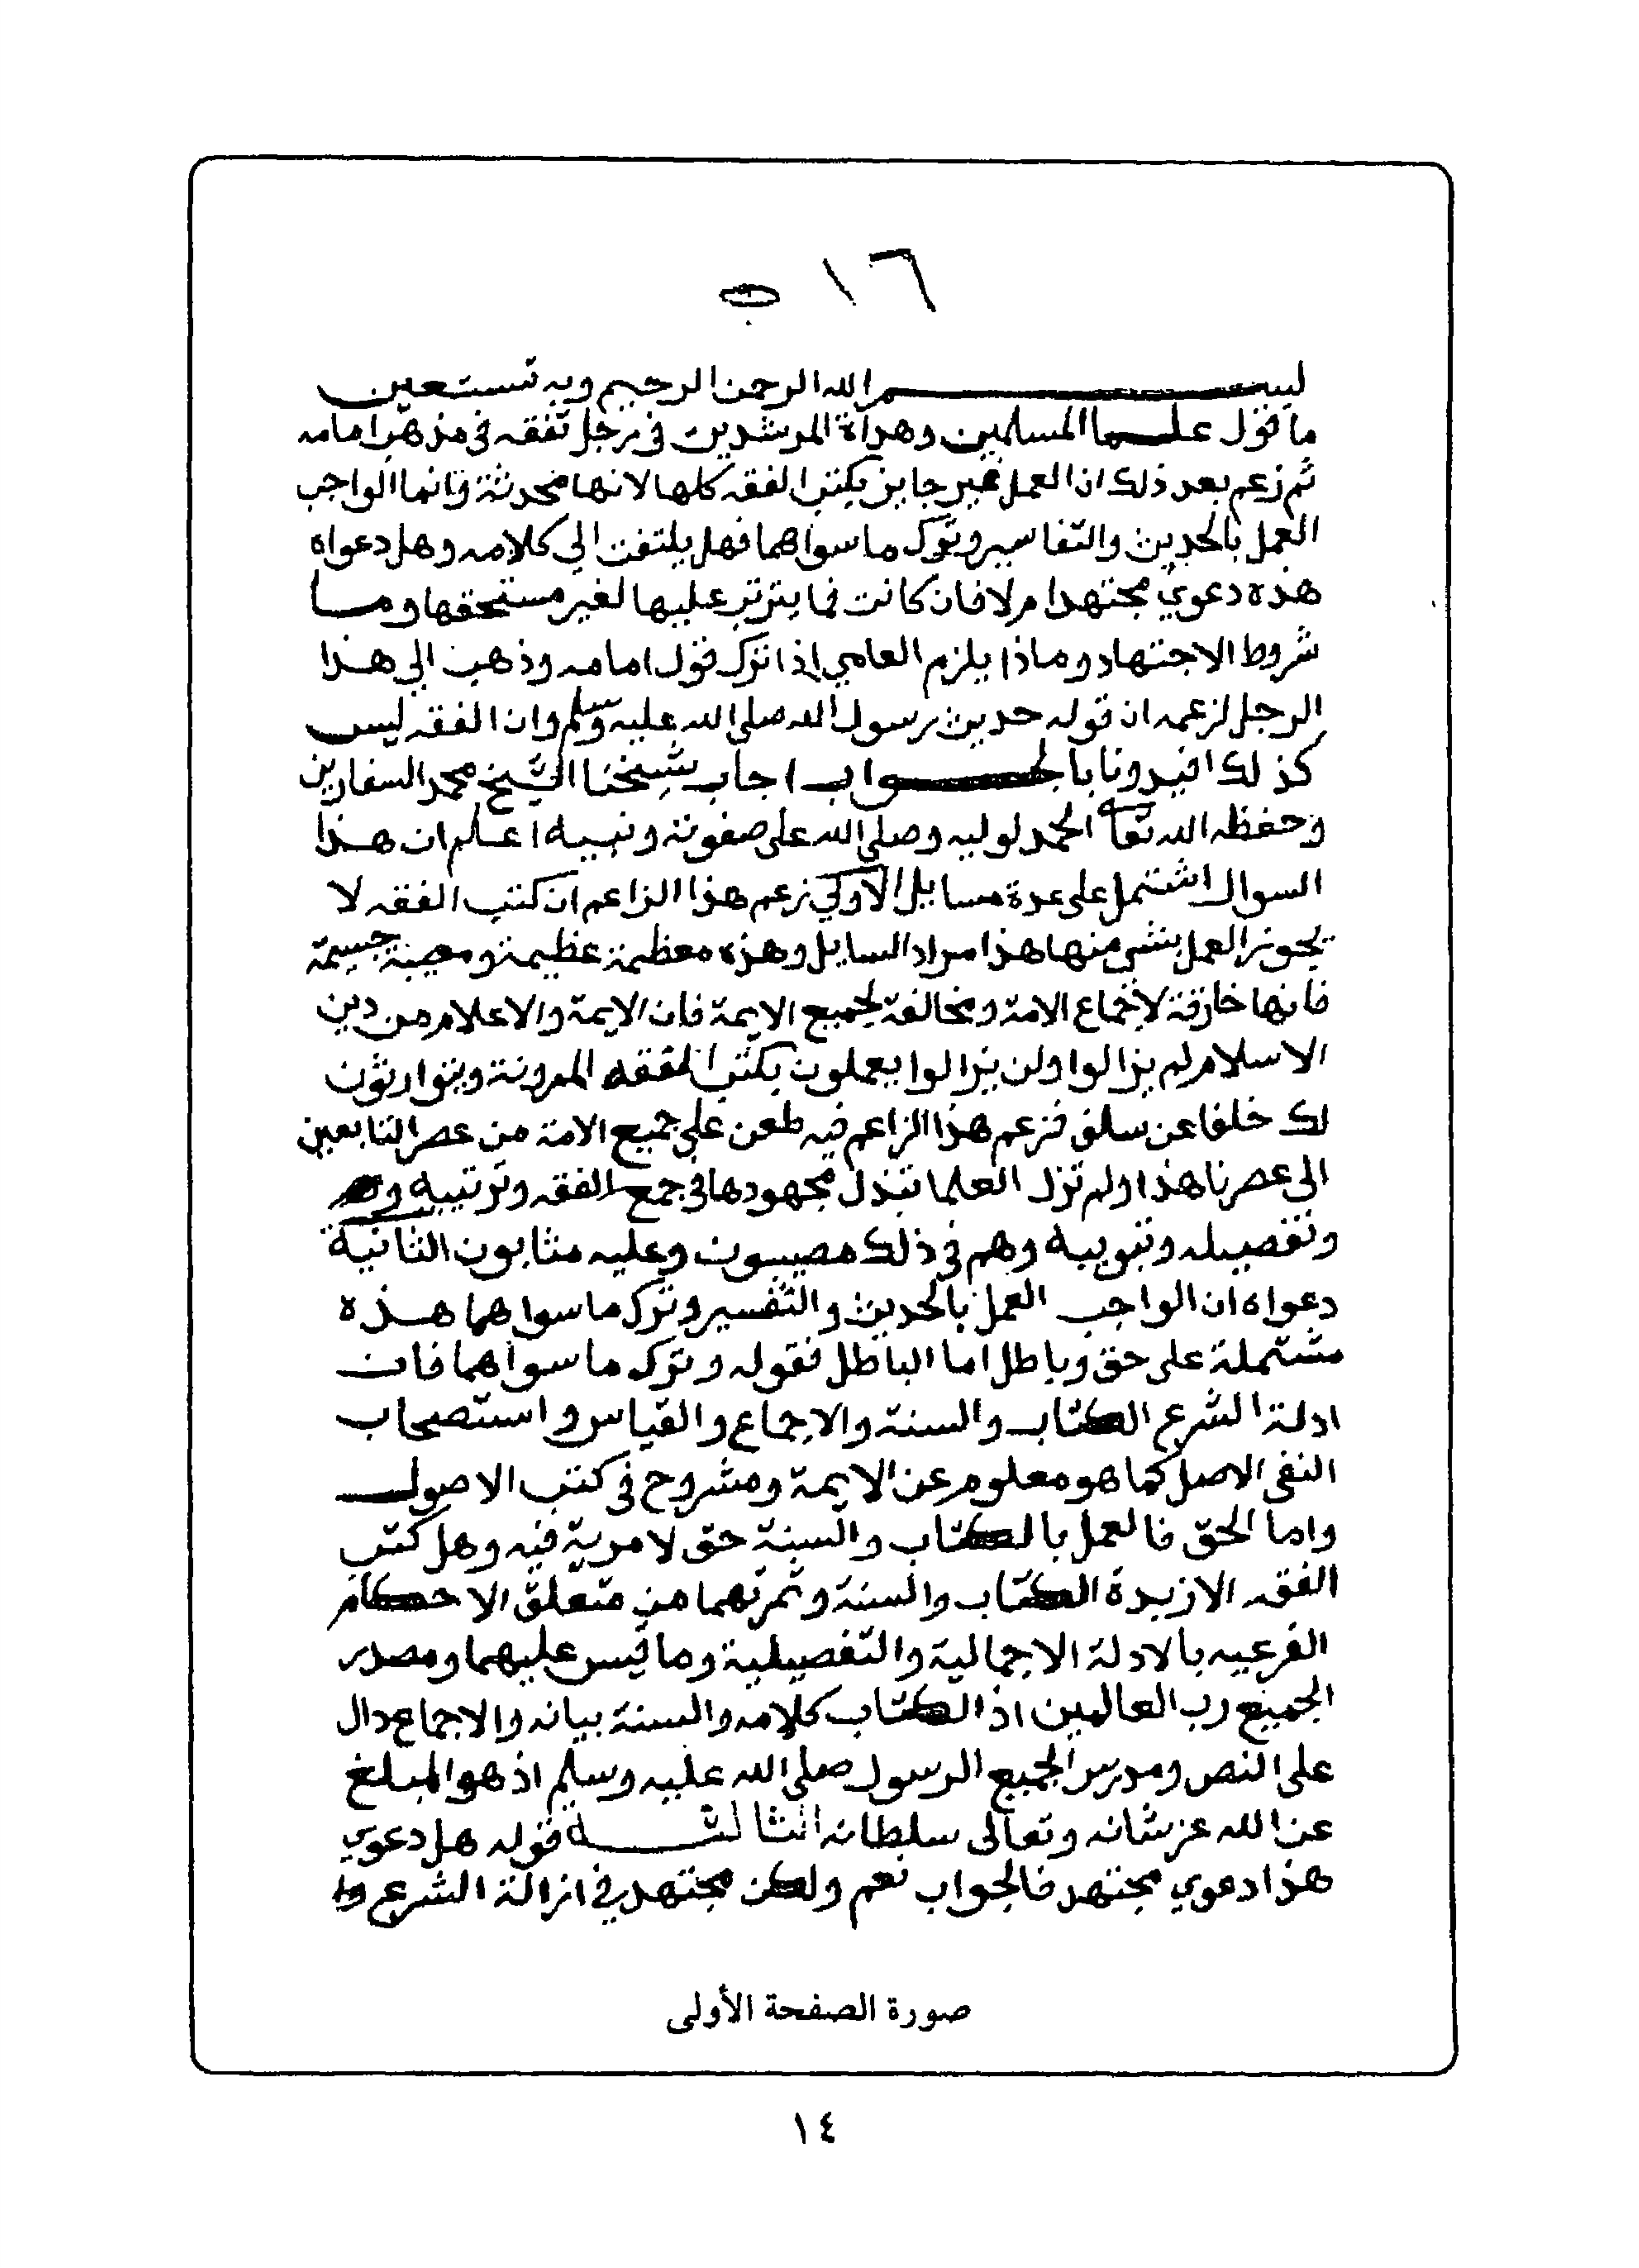 ١٦ ب
بسم الله الرحمن الرحيم وبه نستعين
ما قول علما المسلمين وهداة المرشدين في رجل تفقه في مذهب امامه
ثم زعم بعد ذلك ان العمل غير جايز بكتب الفقه كلها لانها محدثة وانما الواجب
العمل بالحديث والتفاسير وترك ما سواهما فهل يلتفت الي كلامه وهل دعواه
هذه دعوي مجتهد ام لا فان كانت فما يترتب عليها لغير مستحقها وما
شروط الاجتهاد وماذا يلزم العامي اذا ترك قول امامه وذهب الي هذا
الرجل لزعمه ان قوله حديث رسول الله صلى الله عليه وسلم وان الفقه ليس
كذلك افيدونا بالجواب اجاب شيخنا الشيخ محمد السفاريني
وحفظه الله تعا الحمد لوليه وصلى الله على صفوته ونبيه اعلم ان هذا
السوال اشتمل على عدة مسايل الاولي زعم هذا الزاعم ان كتب الفقه لا
يجوز العمل بشي منها هذا مراد السايل وهذه معظمة عظيمة ومصيبة جسيمة
فانها خارقة لاجماع الامة ومخالفة لجميع الايمة فان الايمة والاعلام من دين
الاسلام لم يزالوا ولن يزالوا يعملون بكتب الفقه المدونة ويتوارثون
لك خلفا عن سلف فزعم هذا الزاعم فيه طعن على جميع الامة من عصر التابعين
الى عصرنا هذا ولم تزل العلما تبذل مجهودها في جمع الفقه وترتيبه
وتفصيله وتبويبه وهم في ذلك مصيبون وعليه مثابون الثانية
دعواه ان الواجب العمل بالحديث والتفسير وترك ما سواهما هذه
مشتملة على حق وباطل اما الباطل فقوله وترك ما سواهما فان
ادلة الشرع الكتاب والسنة والاجماع والقياس واستصحاب
النفي الاصل كما هو معلوم عن الايمة ومشروح في كتب الاصول
واما الحق فالعمل بالكتاب والسنة حق لا مرية فيه وهل كتب
الفقه الا زبدة الكتاب والسنة وثمرتهما من متعلق الاحكام
الفرعيه بالادلة الاجمالية والتفصيلية وما قيس عليهما ومصدر
الجميع رب العالمين اذ الكتاب كلامه والسنة بيانه والاجماع دال
على النص ومدرس الجميع الرسول صلى الله عليه وسلم اذ هو المبلغ
عن الله عز شانه وتعالى سلطانه الثالثة قوله هل دعوي
هذا دعوي مجتهد فالجواب نعم ولكن مجتهد في ازالة الشرع
صورة الصفحة الأولى
١٤